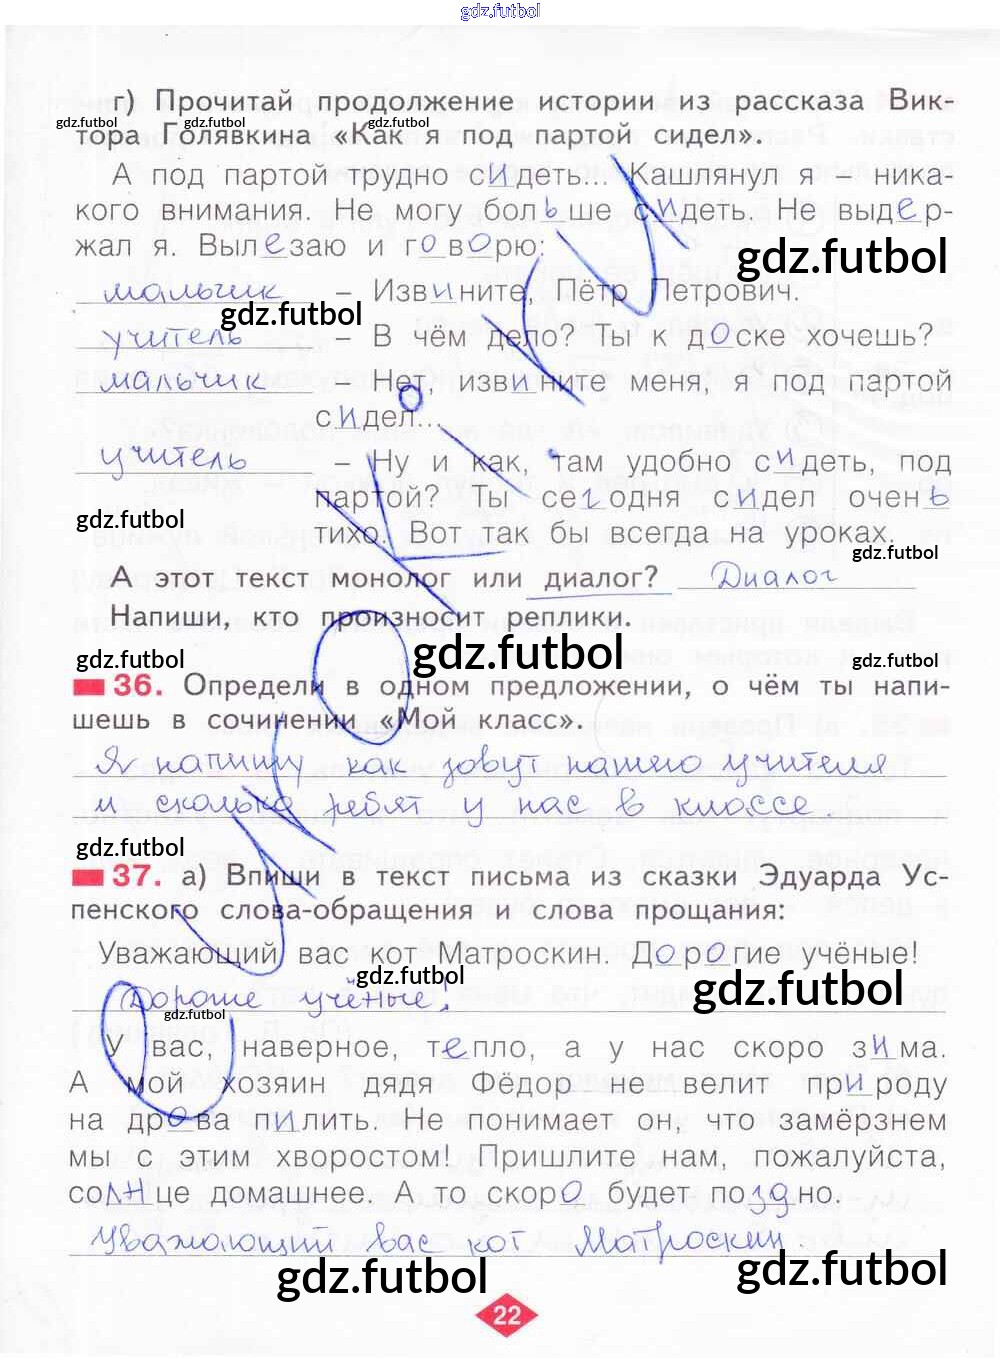 gdz.futbol
г) Прочитай продолжение истории из рассказа Вик-
gdz.futbol gdz.futbol gdz.futbol gdz.futbol
тора Голявкина «Как я под партой сидел».
А под партой трудно сидеть... Кашлянул я – ника-
кого внимания. Не могу больше сидеть. Не выдер-
жал я. Вылезаю и говорю:
gdz.futbol
мальчик – Извините, Пётр Петрович.
gdz.futbol
учитель – В чём дело? Ты к доске хочешь?
мальчик – Нет, извините меня, я под партой
сидел...
учитель – Ну и как, там удобно сидеть, под
партой? Ты сегодня сидел очень
gdz.futbol
тихо. Вот так бы всегда на уроках.
gdz.futbol
А этот текст монолог или диалог? Диалог
Напиши, кто произносит реплики.
gdz.futbol gdz.futbol gdz.futbol
36. Определи в одном предложении, о чём ты напи-
шешь в сочинении «Мой класс».
Я напишу как зовут нашего учителя
и сколько ребят у нас в классе.
gdz.futbol
37. а) Впиши в текст письма из сказки Эдуарда Ус-
пенского слова-обращения и слова прощания:
Уважающий вас кот Матроскин. Дорогие учёные!
gdz.futbol gdz.futbol
Дорогие учёные!
gdz.futbol
У вас, наверное, тепло, а у нас скоро зима.
А мой хозяин дядя Фёдор не велит природу
на дрова пилить. Не понимает он, что замёрзнем
мы с этим хворостом! Пришлите нам, пожалуйста,
солнце домашнее. А то скоро будет поздно.
Уважающий вас кот Матроскин.
gdz.futbol gdz.futbol
22